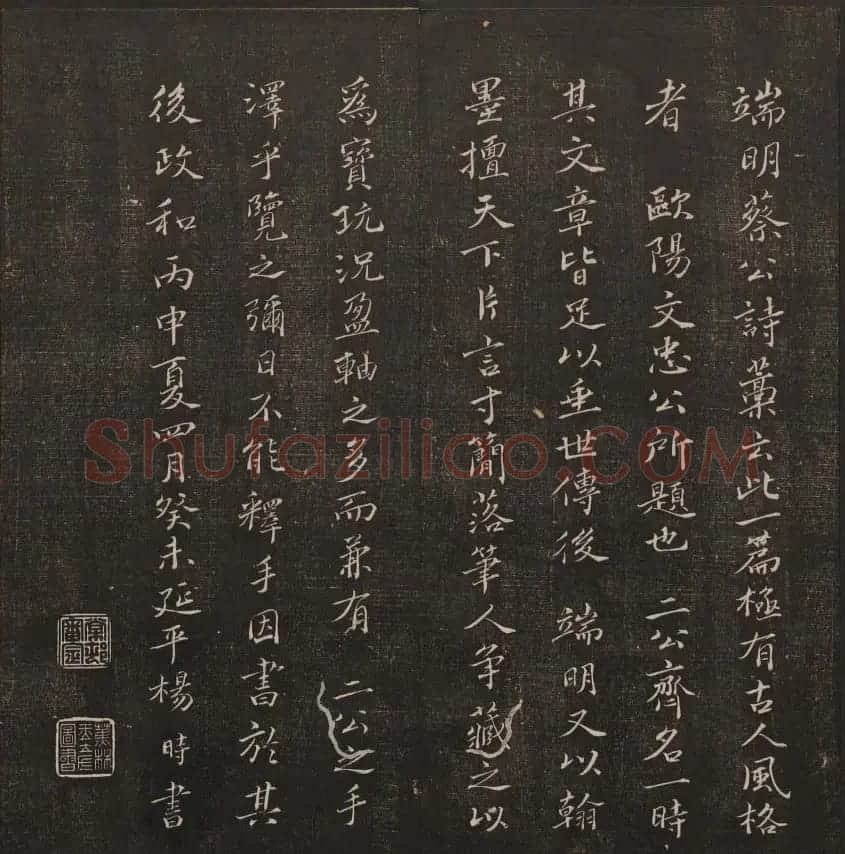 端明蔡公詩藁云此一篇極有古人風格
者 歐陽文忠公所題也 二公齊名一時
其文章皆足以垂世傳後 端明又以翰
墨擅天下片言寸簡落筆人争藏之以
爲寶玩況盈軸之多而兼有 二公之手
澤乎覽之彌日不能釋手因書於其
後政和丙申夏四月癸未延平楊 時書
Shufaziliao.COM